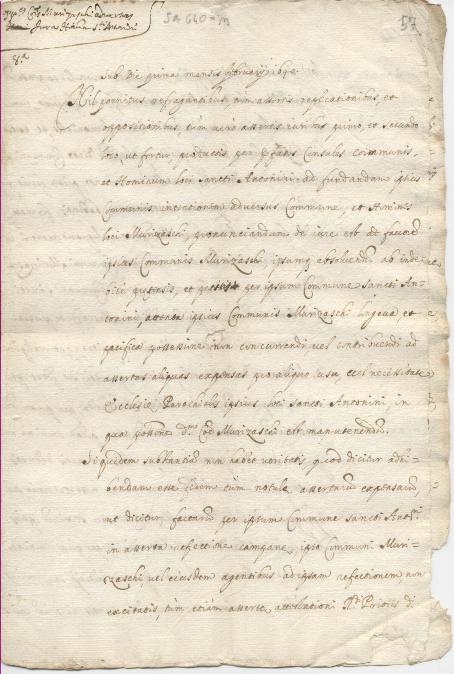 57
Sub Die prima mensis februarij
Nil penitus refragantibus, tum assertis replicationibus, et
oppositionibus, tum vero assertis iuribus primo, et secundo
loco, ut fertur, productis per Consules Communis,
et Hominum loci Sancti Antonini ad fundandam ipsius
Communis intentionem adversus Commune, et Homines
loci Murizaschi, pronunciandum de iure est de favore
ipsius Communis Murizaschi, ipsumq absolvendum ab inde
bite quesitis, et petitis per ipsum Commune Sancti An-
tonini, attenta ipsius Communis Murizaschi longeva et
pacifica possessione non concurrendi vel contribuendi ad
assertas aliquas expensas pro aliquo usu, vel necessitate
Ecclesie Parochialis ipsius loci Sancti Antonini, in
qua possone Murizaschi est manutenendum.
Siquidem substantiam non habet veritatis, quod dicitur adhi-
bendam esse fidem tum notule assertarum expensarum
ut dicitur factarum per ipsum Commune Sancti Anti
in asserta refectione campane, ipso Communi Muri-
zaschi, vel eiusdem agentibus ad ipsam refectionem non
excitatis, tum etiam asserte attestationi Rdi Prioris di